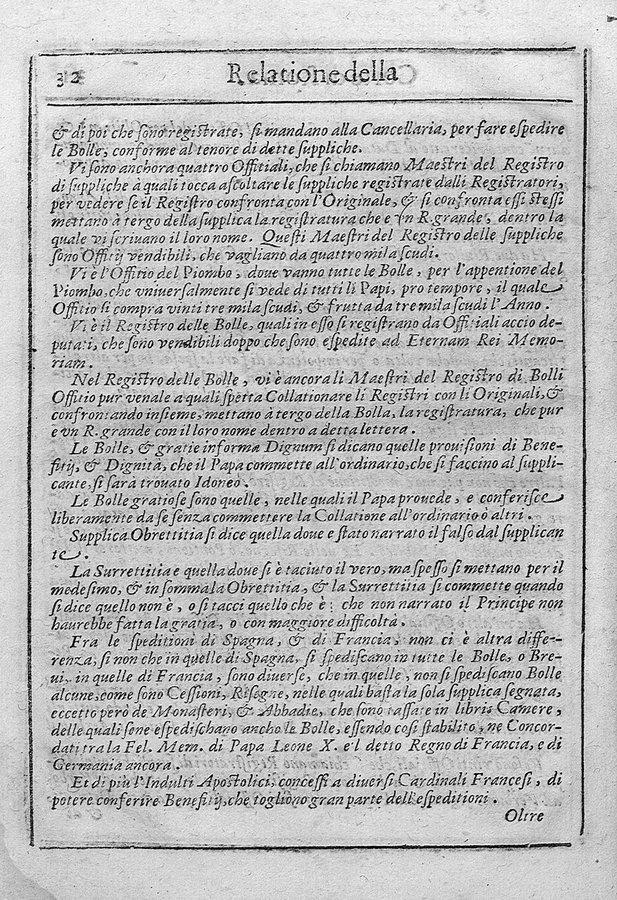 32 Relatione della
& di poi che sono registrate, si mandano alla Cancellaria, per fare espedire
le Bolle, conforme al tenore di dette suppliche.
Vi sono anchora quattro Offitiali, che si chiamano Maestri del Registro
di suppliche à quali tocca ascoltare le suppliche registrate dalli Registratori,
per vedere se il Registro confronta con l'Originale, & si confronta essi stessi
mettano à tergo della supplica la registratura che e vn R. grande, dentro la
quale vi scriuano il loro nome. Questi Maestri del Registro delle suppliche
sono Offitij vendibili, che vagliano da quattro mila scudi.
Vi è l'Offitio del Piombo, doue vanno tutte le Bolle, per l'appentione del
Piombo, che vniuersalmente si vede di tutti li Papi, pro tempore, il quale
Offitio si compra vinti tre mila scudi, & frutta da tre mila scudi l'Anno.
Vi è il Registro delle Bolle, quali in esso si registrano da Offitiali accio de-
putati, che sono vendibili doppo che sono espedite ad Eternam Rei Memo-
riam.
Nel Registro delle Bolle, vi è ancora li Maestri del Registro di Bolli
Offitio pur venale a quali spetta Collationare li Registri con li Originali, &
confrontando insieme, mettano à tergo della Bolla, la registratura, che pur
e vn R. grande con il loro nome dentro a detta lettera.
Le Bolle, & gratie informa Dignum si dicano quelle prouisioni di Bene-
fitij, & Dignita, che il Papa commette all'ordinario, che si faccino al suppli-
cante, si sarà trouato Idoneo.
Le Bolle gratiose sono quelle, nelle quali il Papa prouede, e conferisce
liberamente da se senza commettere la Collatione all'ordinario ò altri.
Supplica Obrettitia si dice quella doue e stato narrato il falso dal supplican
te.
La Surrettitia e quella doue si è taciuto il vero, ma spesso si mettano per il
medesimo, & in somma la Obrettitia, & la Surrettitia si commette quando
si dice quello non è, o si tacci quello che è: che non narrato il Principe non
haurebbe fatta la gratia, o con maggiore difficoltà.
Fra le speditioni di Spagna, & di Francia, non ci è altra diffe-
renza, si non che in quelle di Spagna, si spediscano in tutte le Bolle, o Bre-
ui, in quelle di Francia, sono diuerse, che in quelle, non si spediscano Bolle
alcune, come sono Cessioni, Risegne, nelle quali basta la sola supplica segnata,
eccetto però de Monasteri, & Abbadie, che sono tassate in libris Camere,
delle quali sene espedischano ancho le Bolle, essendo cosi stabilito, ne Concor-
dati tra la Fel. Mem. di Papa Leone X. e'l detto Regno di Francia, e di
Germania ancora.
Et di più l'Indulti Apostolici, concessi a diuersi Cardinali Francesi, di
potere conferire Benefitij, che togliono gran parte dell'espeditioni.
Oltre